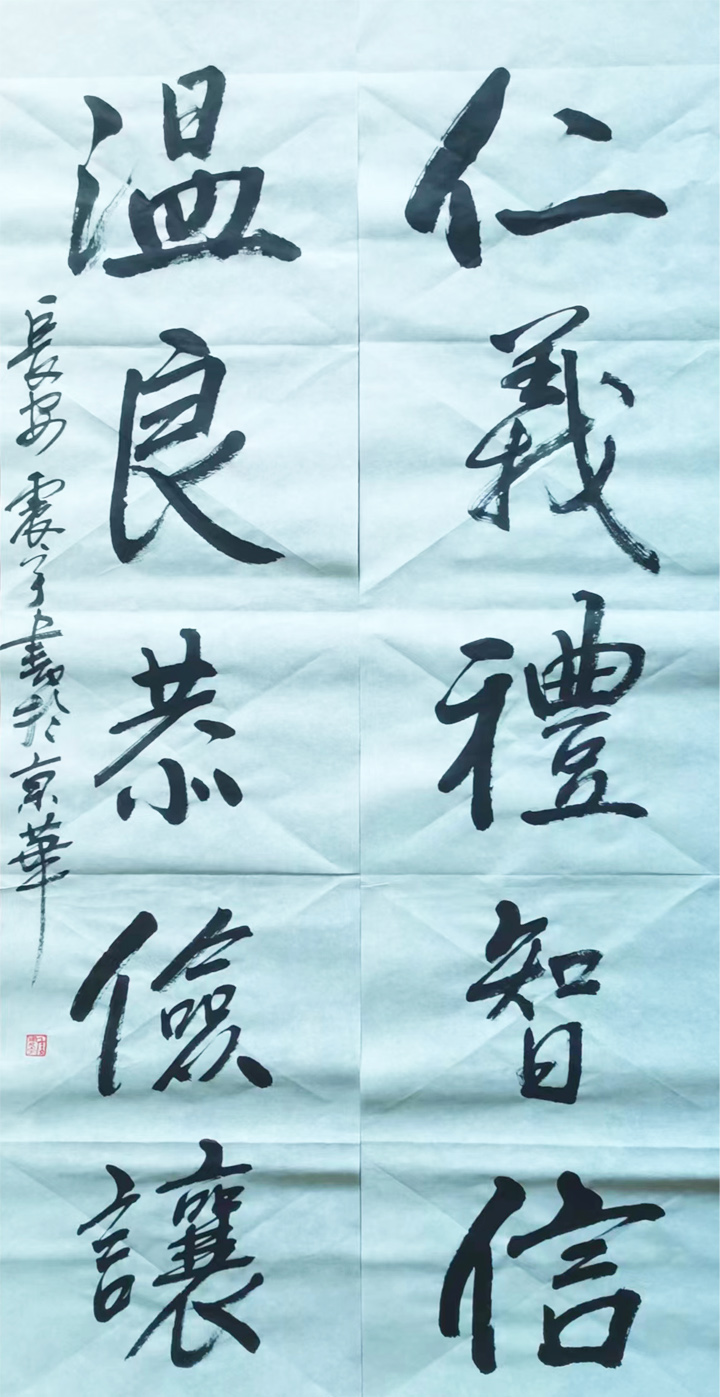 仁義禮智信
温良恭儉讓
長安震宇書於京華